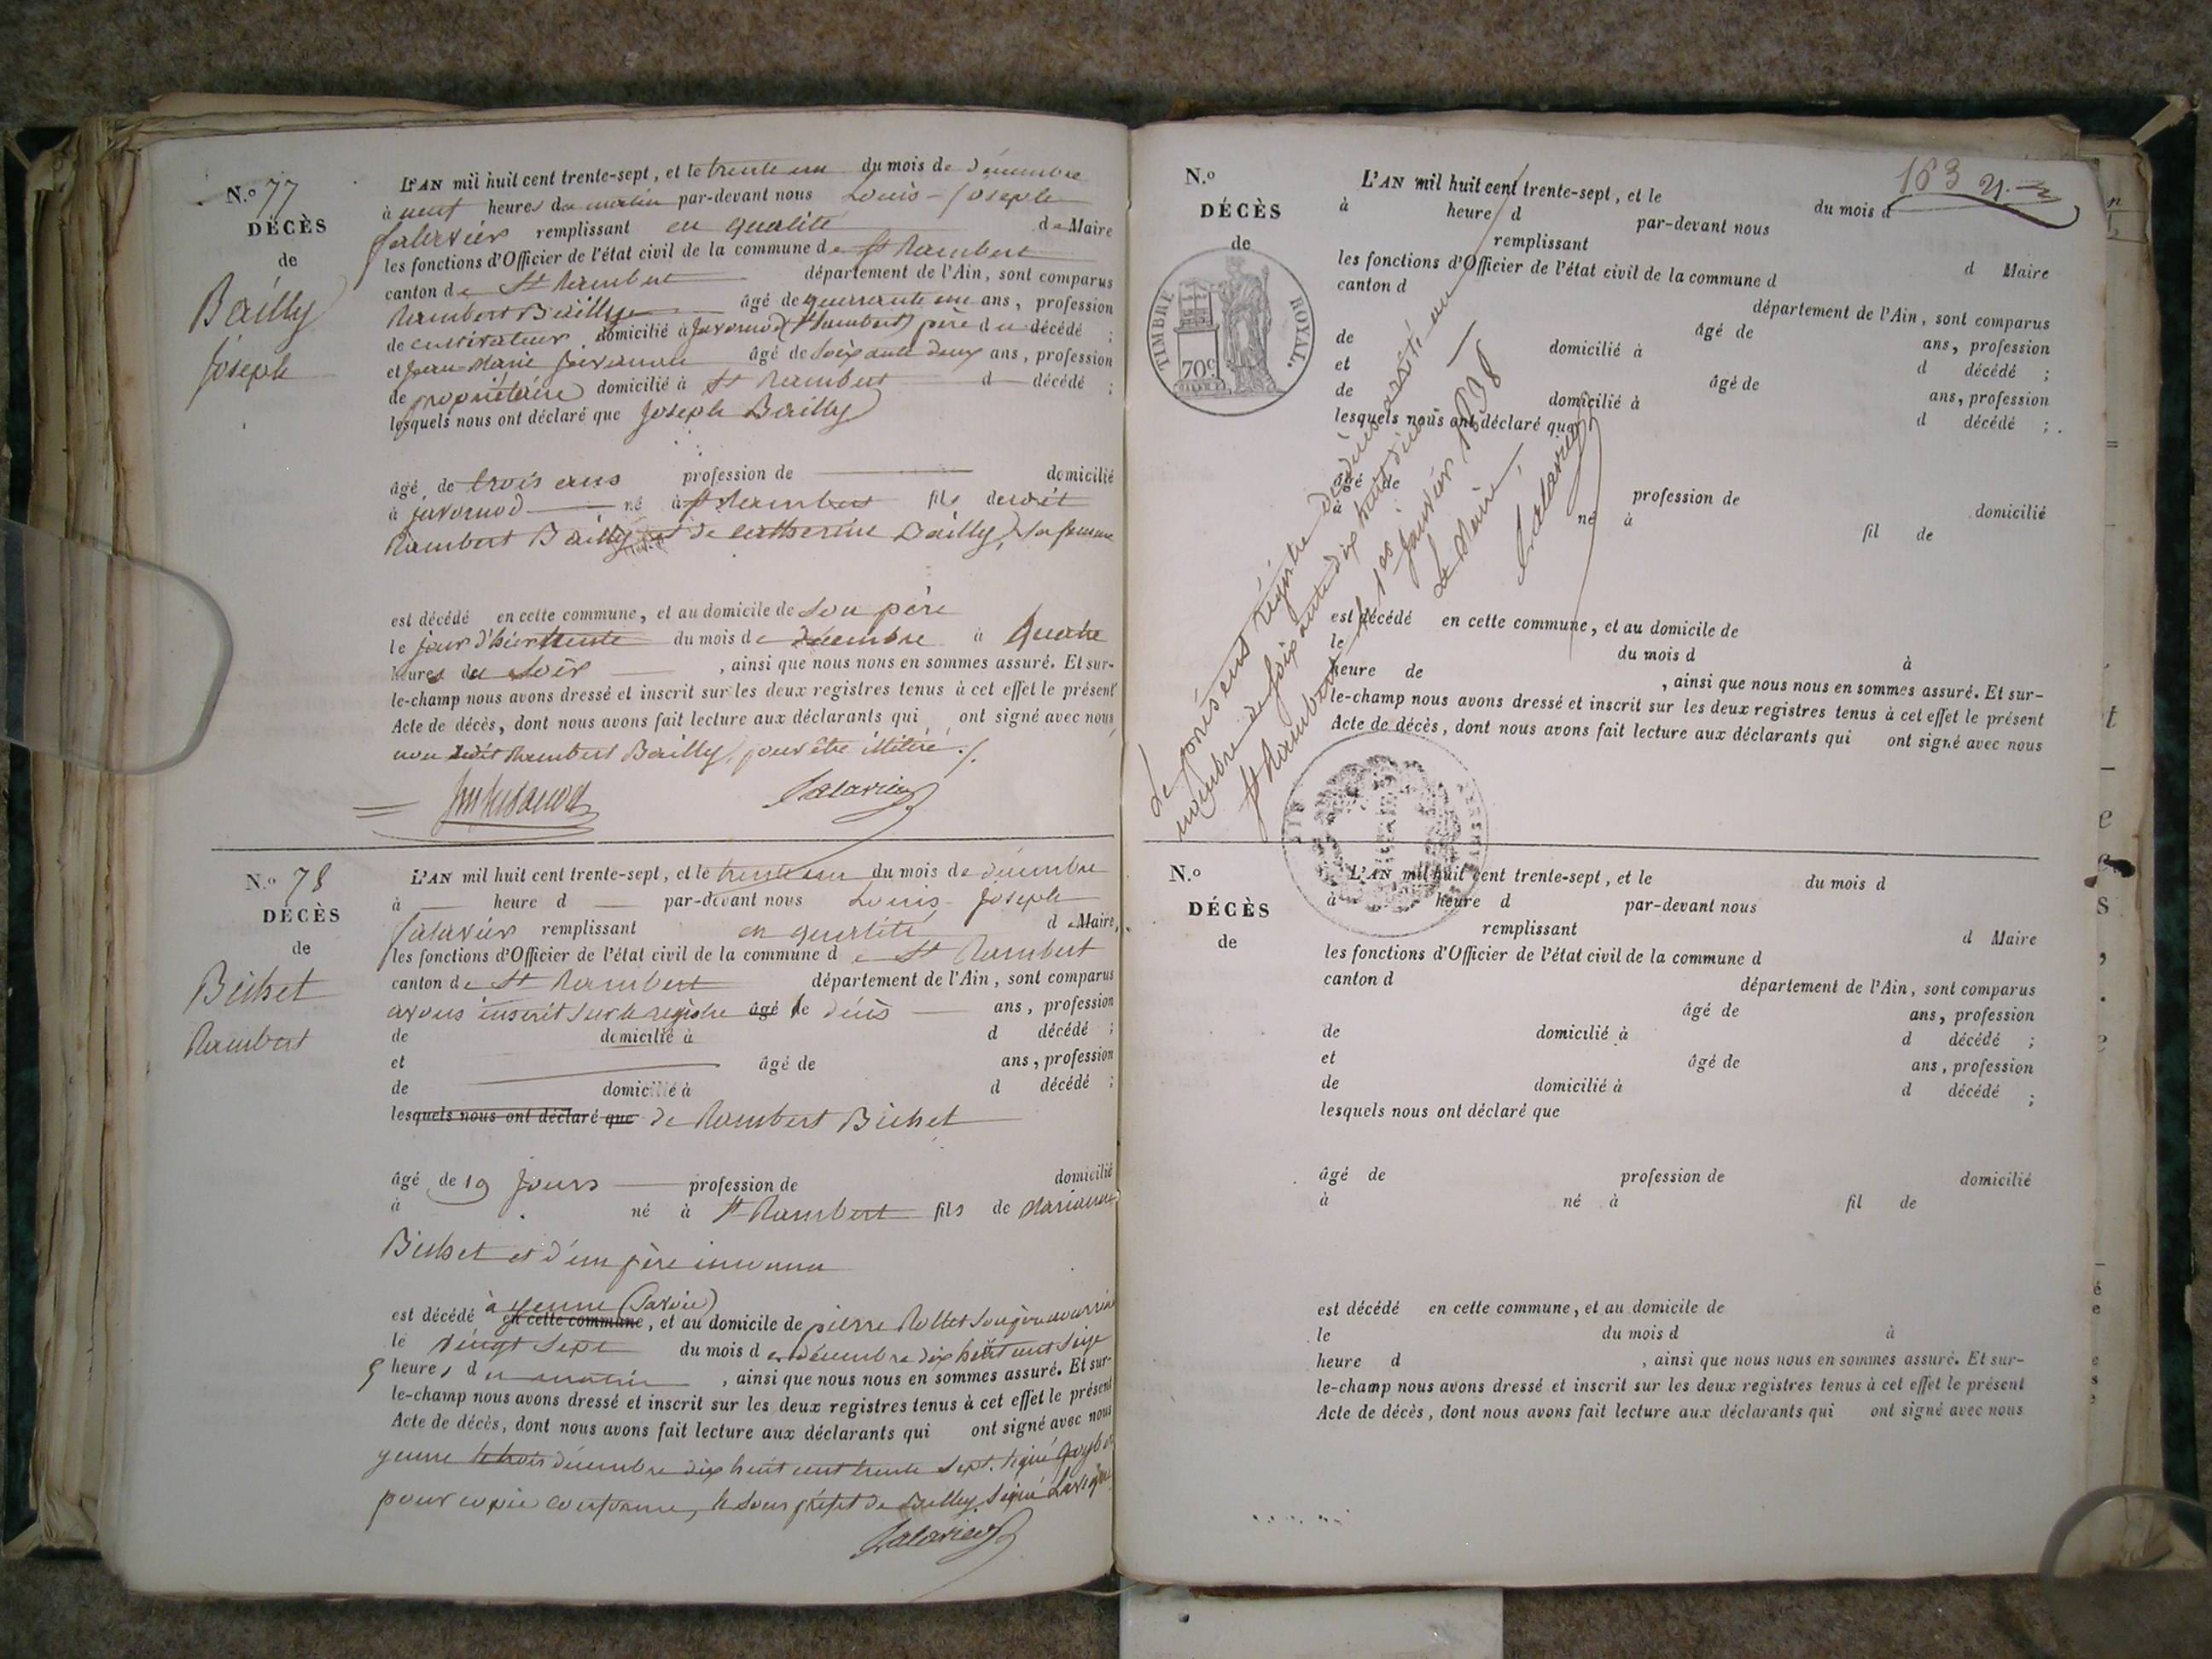 N.o 77
DÉCÈS
de
Bailly
Joseph
L'AN mil huit cent trente-sept, et le trente un du mois de Décembre
à neuf heures du matin par-devant nous Louis-Joseph
Salavier remplissant en qualité de Maire
les fonctions d'Officier de l'état civil de la commune de St Rambert
canton de St Rambert département de l'Ain, sont comparus
Rambert Bailly âgé de quarante un ans, profession
de cultivateur domicilié à Javornod (St Rambert) père du décédé ;
et Jean-Marie âgé de soixante deux ans, profession
de propriétaire domicilié à St Rambert d décédé ;
lesquels nous ont déclaré que Joseph Bailly
âgé de trois ans profession de domicilié
à Javornod né à St Rambert fils de dit
Rambert Bailly et de Catherine Bailly, sa femme
est décédé en cette commune, et au domicile de son père
le jour d'hier trente du mois de décembre à quatre
heures du soir , ainsi que nous nous en sommes assuré. Et sur-
le-champ nous avons dressé et inscrit sur les deux registres tenus à cet effet le présent
Acte de décès, dont nous avons fait lecture aux déclarants qui ont signé avec nous
non dit Rambert Bailly, pour être illétéré ./.
Salavier
N.o 78
DÉCÈS
de
Bichet
Rambert
L'AN mil huit cent trente-sept, et le trente un du mois de décembre
à heure d par-devant nous Louis-Joseph
Salavier remplissant en qualité de Maire,
les fonctions d'Officier de l'état civil de la commune de St Rambert
canton de St Rambert département de l'Ain, sont comparus
avons inscrit sur le registre âgé de décès ans, profession
de domicilié à d décédé ;
et âgé de ans, profession
de domicilié à d décédé ;
lesquels nous ont déclaré que de Rambert Bichet
âgé de 19 jours profession de domicilié
à né à St Rambert fils de Marianne
Bichet et d'un père inconnu
à Yenne (Savoie)
est décédé en cette commune, et au domicile de pierre Rollet son père nourricier
le vingt sept du mois de décembre dix huit cent seize
5 heures du matin , ainsi que nous nous en sommes assuré. Et sur-
le-champ nous avons dressé et inscrit sur les deux registres tenus à cet effet le présent
Acte de décès, dont nous avons fait lecture aux déclarants qui ont signé avec nous
yenne le trois décembre dix huit cent trente sept. signé
pour copie conforme, le sous préfet de Belley. signé
Salavier
163
N.o
DÉCÈS
de
TIMBRE ROYAL.
70c
L'AN mil huit cent trente-sept, et le du mois d
à heure d par-devant nous
remplissant d Maire
les fonctions d'Officier de l'état civil de la commune d
canton d département de l'Ain, sont comparus
âgé de ans, profession
de domicilié à d décédé ;
et âgé de ans, profession
de domicilié à d décédé ;
lesquels nous ont déclaré que
âgé de profession de domicilié
à né à fil de
est décédé en cette commune, et au domicile de
le du mois d à
heure de , ainsi que nous nous en sommes assuré. Et sur-
le-champ nous avons dressé et inscrit sur les deux registres tenus à cet effet le présent
Acte de décès, dont nous avons fait lecture aux déclarants qui ont signé avec nous
Le présent régistre de décès arrêté au
nombre de soixante dix huit décès
St Rambert le 1er Janvier 1838
Le Maire,
Salavier
N.o
DÉCÈS
de
L'AN mil huit cent trente-sept, et le du mois d
à heure d par-devant nous
remplissant d Maire
les fonctions d'Officier de l'état civil de la commune d
canton d département de l'Ain, sont comparus
âgé de ans, profession
de domicilié à d décédé ;
et âgé de ans, profession
de domicilié à d décédé ;
lesquels nous ont déclaré que
âgé de profession de domicilié
à né à fil de
est décédé en cette commune, et au domicile de
le du mois d à
heure d , ainsi que nous nous en sommes assuré. Et sur-
le-champ nous avons dressé et inscrit sur les deux registres tenus à cet effet le présent
Acte de décès, dont nous avons fait lecture aux déclarants qui ont signé avec nous